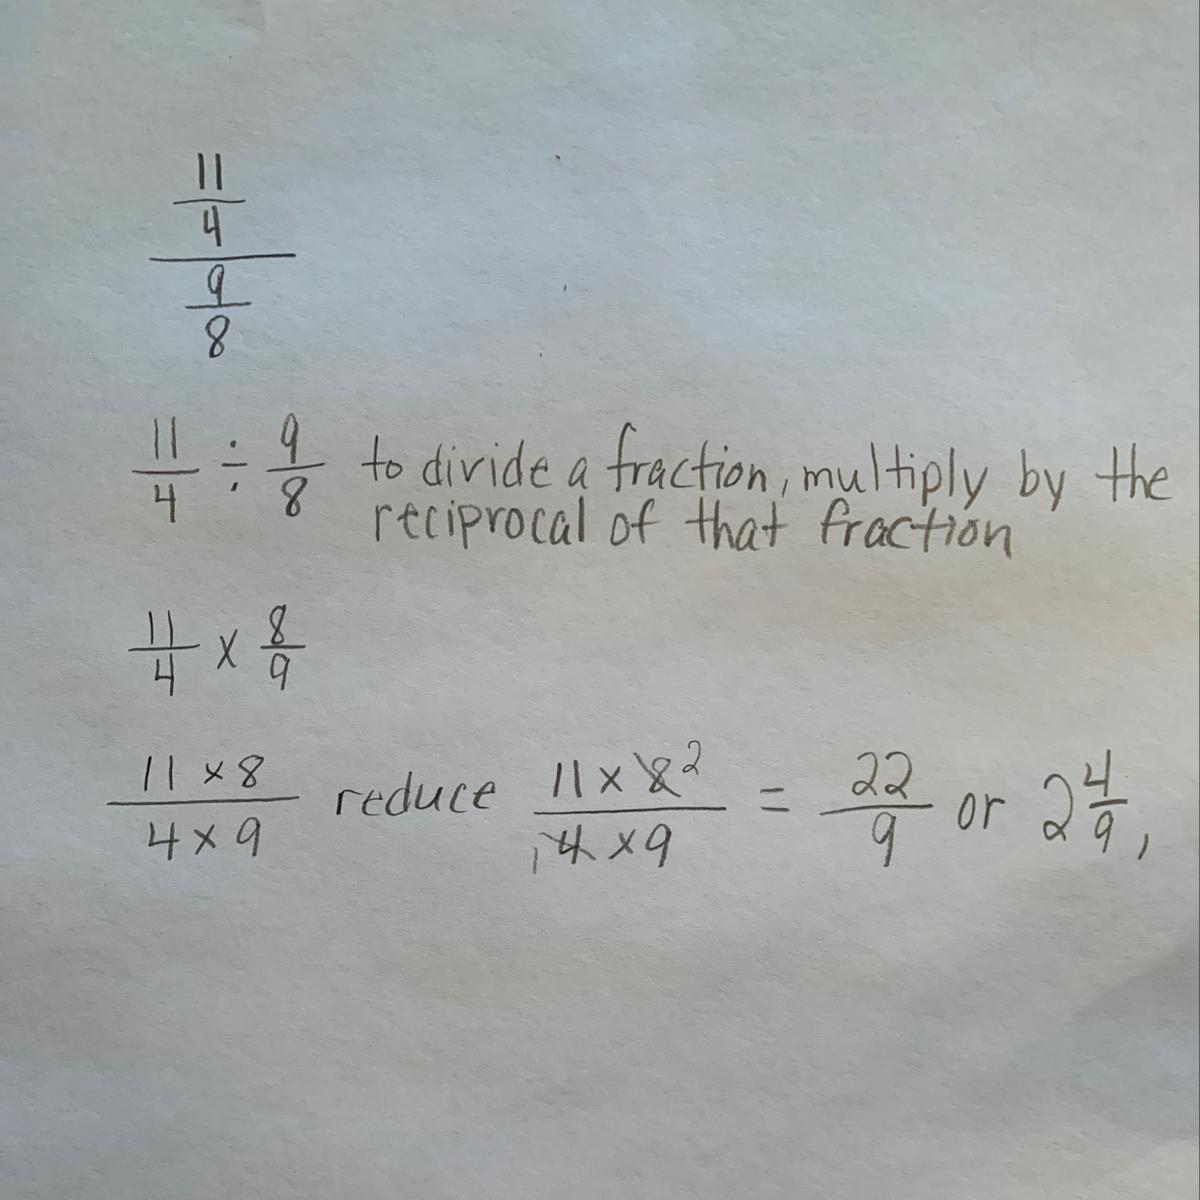 11
4
9
8
11/4 ÷ 9/8 to divide a fraction, multiply by the
reciprocal of that fraction
11/4 x 8/9
11 x 8 / 4 x 9 reduce 11 x 8 2 / 1 4 x 9 = 22/9 or 2 4/9,